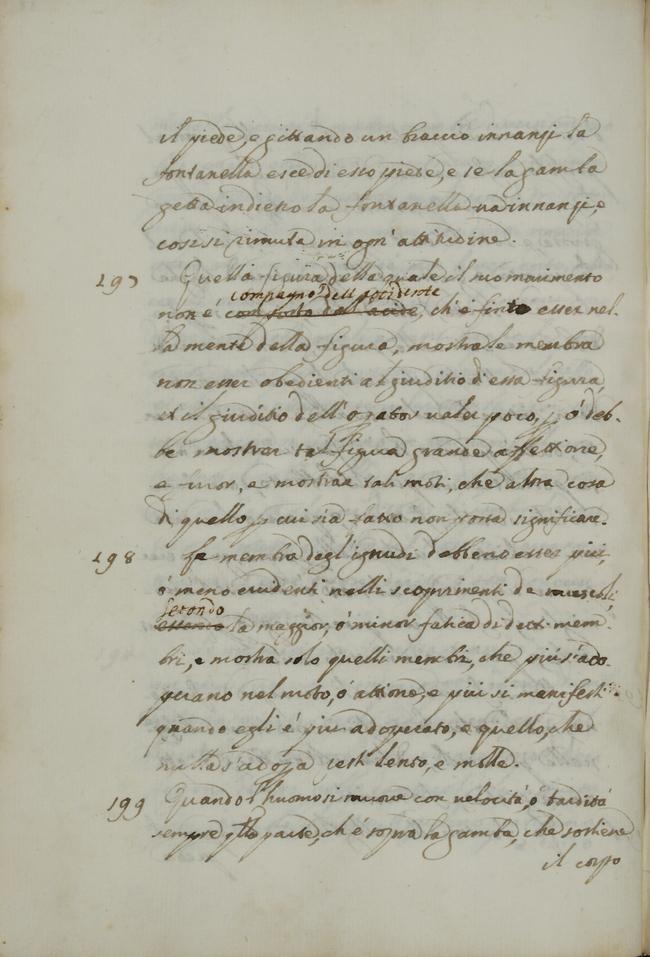 il piede, e gittando un braccio innanzi la
fontanella esce di esso piede, e se la gamba
getta indietro la fontanella va innanzi, e
così si rimuta in ogn' attitudine.
197 Quella figura della quale il suo movimento
compagno dell' accidente
non é ch' é finto esser nel-
la mente della figura, mostra le membra
non esser obedienti al giuditio d' essa figura,
et il giuditio dell' operator valer poco, però deb-
be mostrar tal figura grande affettione,
e fervor, e mostrar tali moti, che altra cosa
di quello p cui sia fatto non possa significare.
198 Le membra degl' ignudi debbeno esser più,
ó meno evidenti nelli scoprimenti de muscoli,
secondo
la maggior, ó minor fatica di detti mem-
bri, e mostra solo quelli membri, che più s' ado-
perano nel moto, ó attione, e più si manifesti
quando egli é più adoperato, e quello, che
nulla s' adopra resti lento, e molle.
199 Quando l' huomo si muove con velocitá, ó tarditá
sempre qlla parte, ch' é sopra la gamba, che sostiene
il corpo